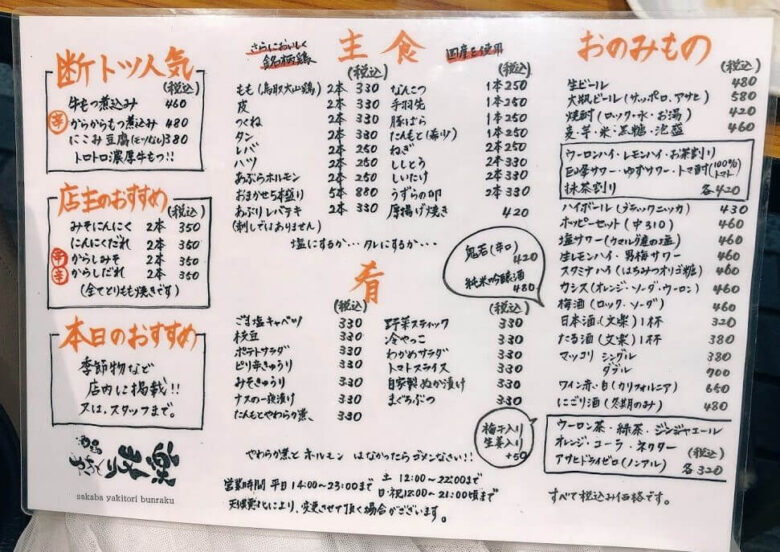 断トツ人気
(税込)
牛もつ煮込み 460
辛 からからもつ煮込み 480
にこみ豆腐(モツなし) 380
トロトロ濃厚牛もつ!!
店主のおすすめ
(税込)
みそにんにく 2本 350
にんにくだれ 2本 350
辛 からしみそ 2本 350
辛 からしだれ 2本 350
(全てとりもも焼きです)
本日のおすすめ
季節物など
店内に掲載!!
又は、スタッフまで。
酒場
やきとり 文楽
sakaba yakitori bunraku
さらにおいしく
銘柄鶏
主食
国産を使用
(税込)
もも(鳥取大山鶏) 2本 330
皮 2本 330
つくね 2本 330
タン 2本 380
レバ 2本 330
ハツ 2本 330
あぶらホルモン 2本 330
おまかせ5本盛り 5本 880
あぶりレバテキ 2本 330
(刺しではありません)
(税込)
なんこつ 1本 250
手羽先 1本 250
豚ばら 1本 250
にんもと(希少) 1本 250
ねぎ 1本 250
ししとう 2本 330
しいたけ 2本 330
うずらの卵 2本 330
厚揚げ焼き 420
塩にするか・・・タレにするか・・・
肴
(税込)
ごま塩キャベツ 330
枝豆 330
ポテトサラダ 330
ピリ辛きゅうり 330
みそきゅうり 330
ナスの一夜漬け 330
たんもとやわらか煮、 330
(税込)
野菜スティック 330
冷やっこ 330
わかめサラダ 330
トマトスライス 330
自家製ぬか漬け 330
まぐろぶつ 330
やわらか煮とホルモンはなかったらゴメンなさい!!
営業時間 平日14:00〜23:00まで 土 12:00〜22:00まで
日・祝12:00〜21:00頃まで
天候悪化により、変更させて頂く場合がございます。
おのみもの
(税込)
生ビール 480
大瓶ビール(サッポロ、アサヒ) 580
焼酎(ロック・水・お湯) 420
麦・芋・米・黒糖・泡盛 460
ウーロンハイ・レモンハイ・お茶割り
巨峰サワー・ゆずサワー・トマ酎(100%トマト)
抹茶割り 各420
ハイボール(ブラックニッカ) 430
ホッピーセット(中310) 460
塩サワー(ゲランド産の塩) 460
生レモンハイ・男梅サワー 460
スタミナハイ(はちみつオリゴ糖) 460
カシス(オレンジ・ソーダ・ウーロン) 460
梅酒(ロック・ソーダ) 460
日本酒(文楽)1杯 320
たる酒(文楽)1杯 380
マッコリ シングル 380
ダブル 700
ワイン赤・白(カリフォルニア) 650
にごり酒(冬期のみ) 480
鬼若(辛口) 420
純米吟醸酒 480
梅干入り
生姜入り
+50
ウーロン茶・緑茶・ジンジャエール
オレンジ・コーラ・ネクター (税込)
アサヒドライゼロ(ノンアル) 各320
すべて税込み価格です。